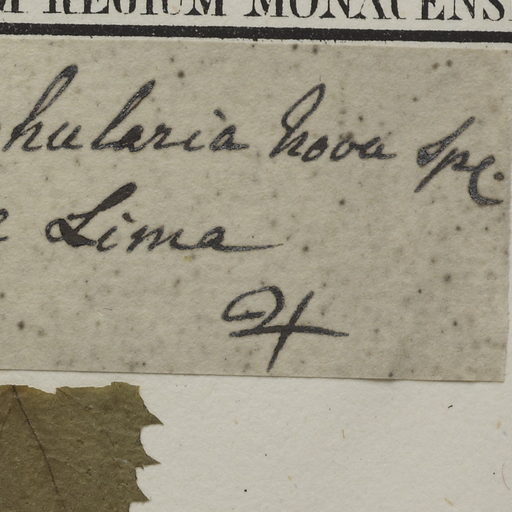 M REGIUM MONACENS
hularia Nova Spe.
e Lima
♃